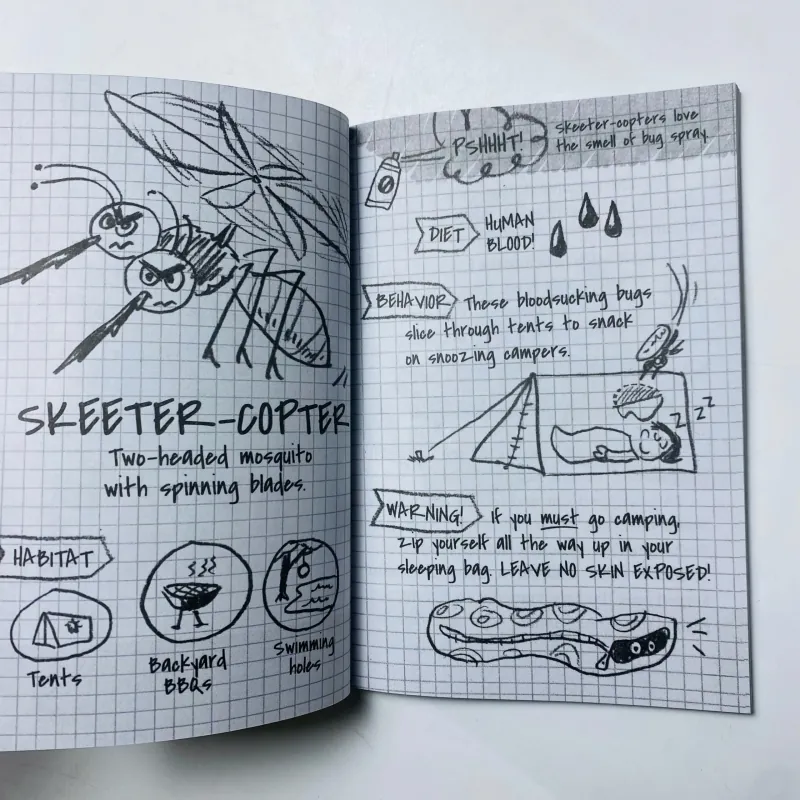 SKEETER-COPTER
Two-headed mosquito
with spinning blades.
HABITAT
Tents
Backyard
BBQs
Swimming
holes
PSHHHT!
skeeter-copters love
the smell of bug spray.
DIET
HUMAN
BLOOD!
BEHAVIOR
These bloodsucking bugs
slice through tents to snack
on snoozing campers.
z z z
WARNING!
If you must go camping,
zip yourself all the way up in your
sleeping bag. LEAVE NO SKIN EXPOSED!